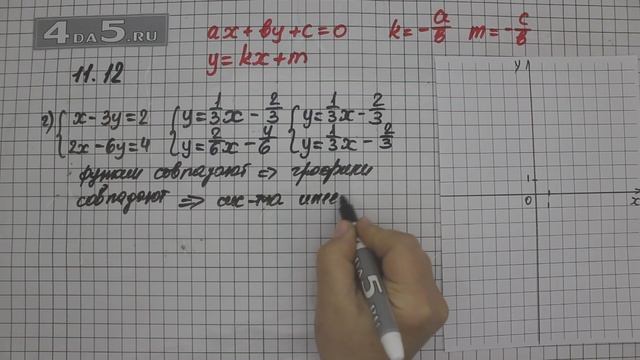 4DA5.RU
ax+by+c=0 k=-a/b m=-c/b
y=kx+m
11.12
г) {x-3y=2 {y=1/3x-2/3 {y=1/3x-2/3
{2x-6y=4 {y=2/6x-4/6 {y=1/3x-2/3
функции совпадают => графики
совпадают => сис-ма имее
y
1
0 1 x
4DA5.RU